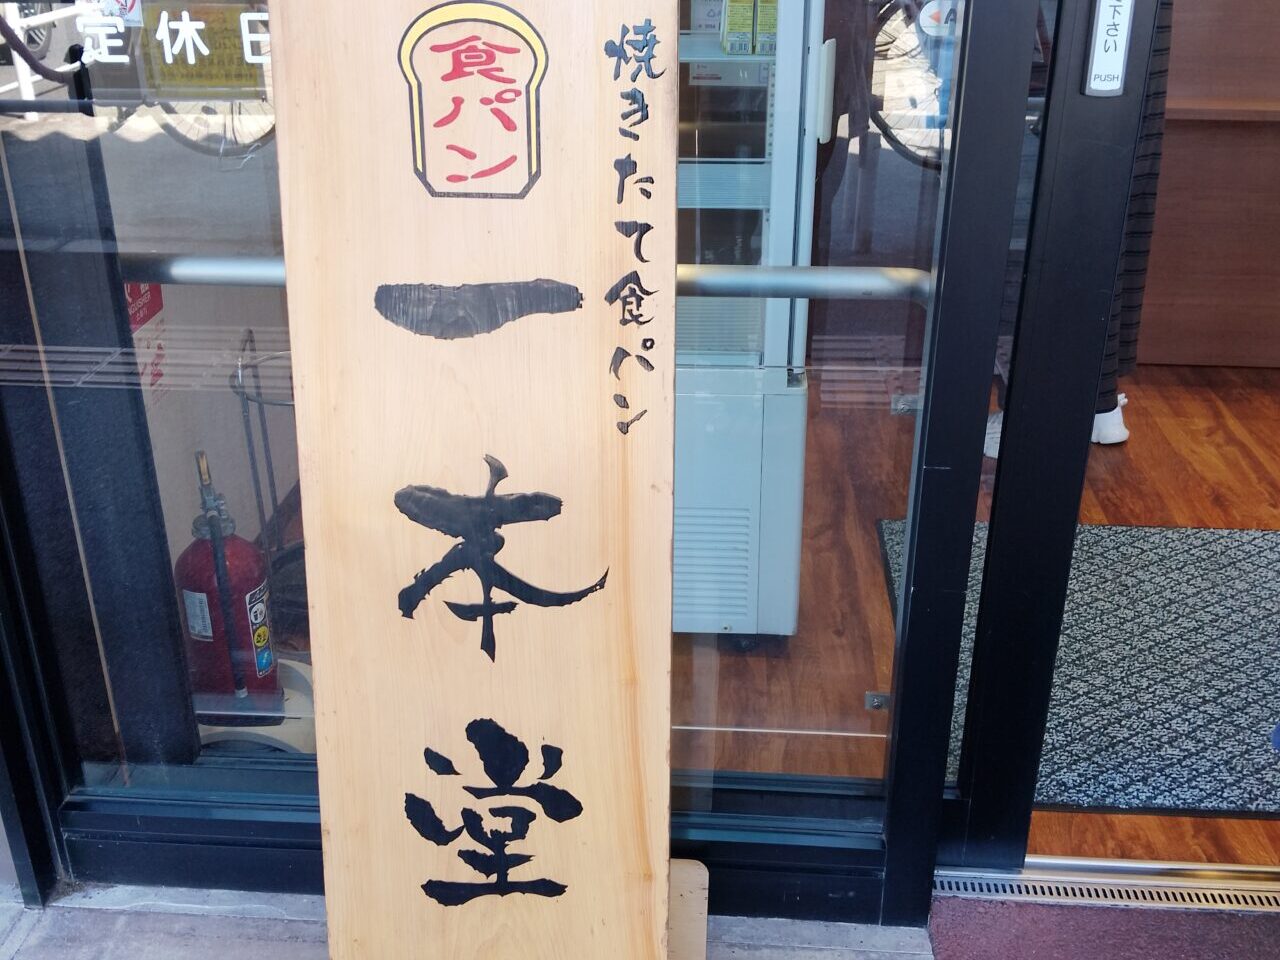 定休日
食パン
焼きたて食パン
一本堂
下さい
PUSH